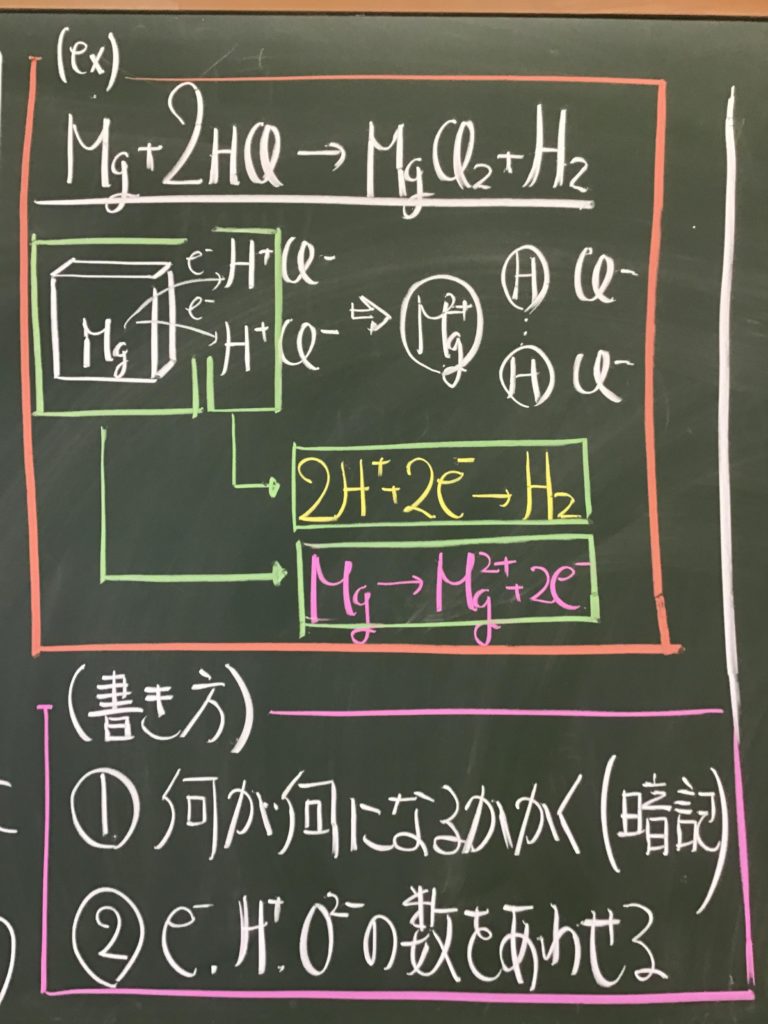 (ex)
Mg+2HCl→MgCl₂+H₂
Mg e⁻ H⁺ Cl⁻ ⇒ Mg²⁺ H Cl⁻
e⁻ H⁺ Cl⁻ H Cl⁻
2H⁺+2e⁻→H₂
Mg→Mg²⁺+2e⁻
(書き方)
① 何が何になるかかく(暗記)
② e⁻. H⁺. O²⁻の数をあわせる